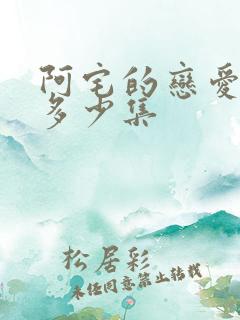 阿宅的戀愛
多少集
松居彩
未经同意禁止转载